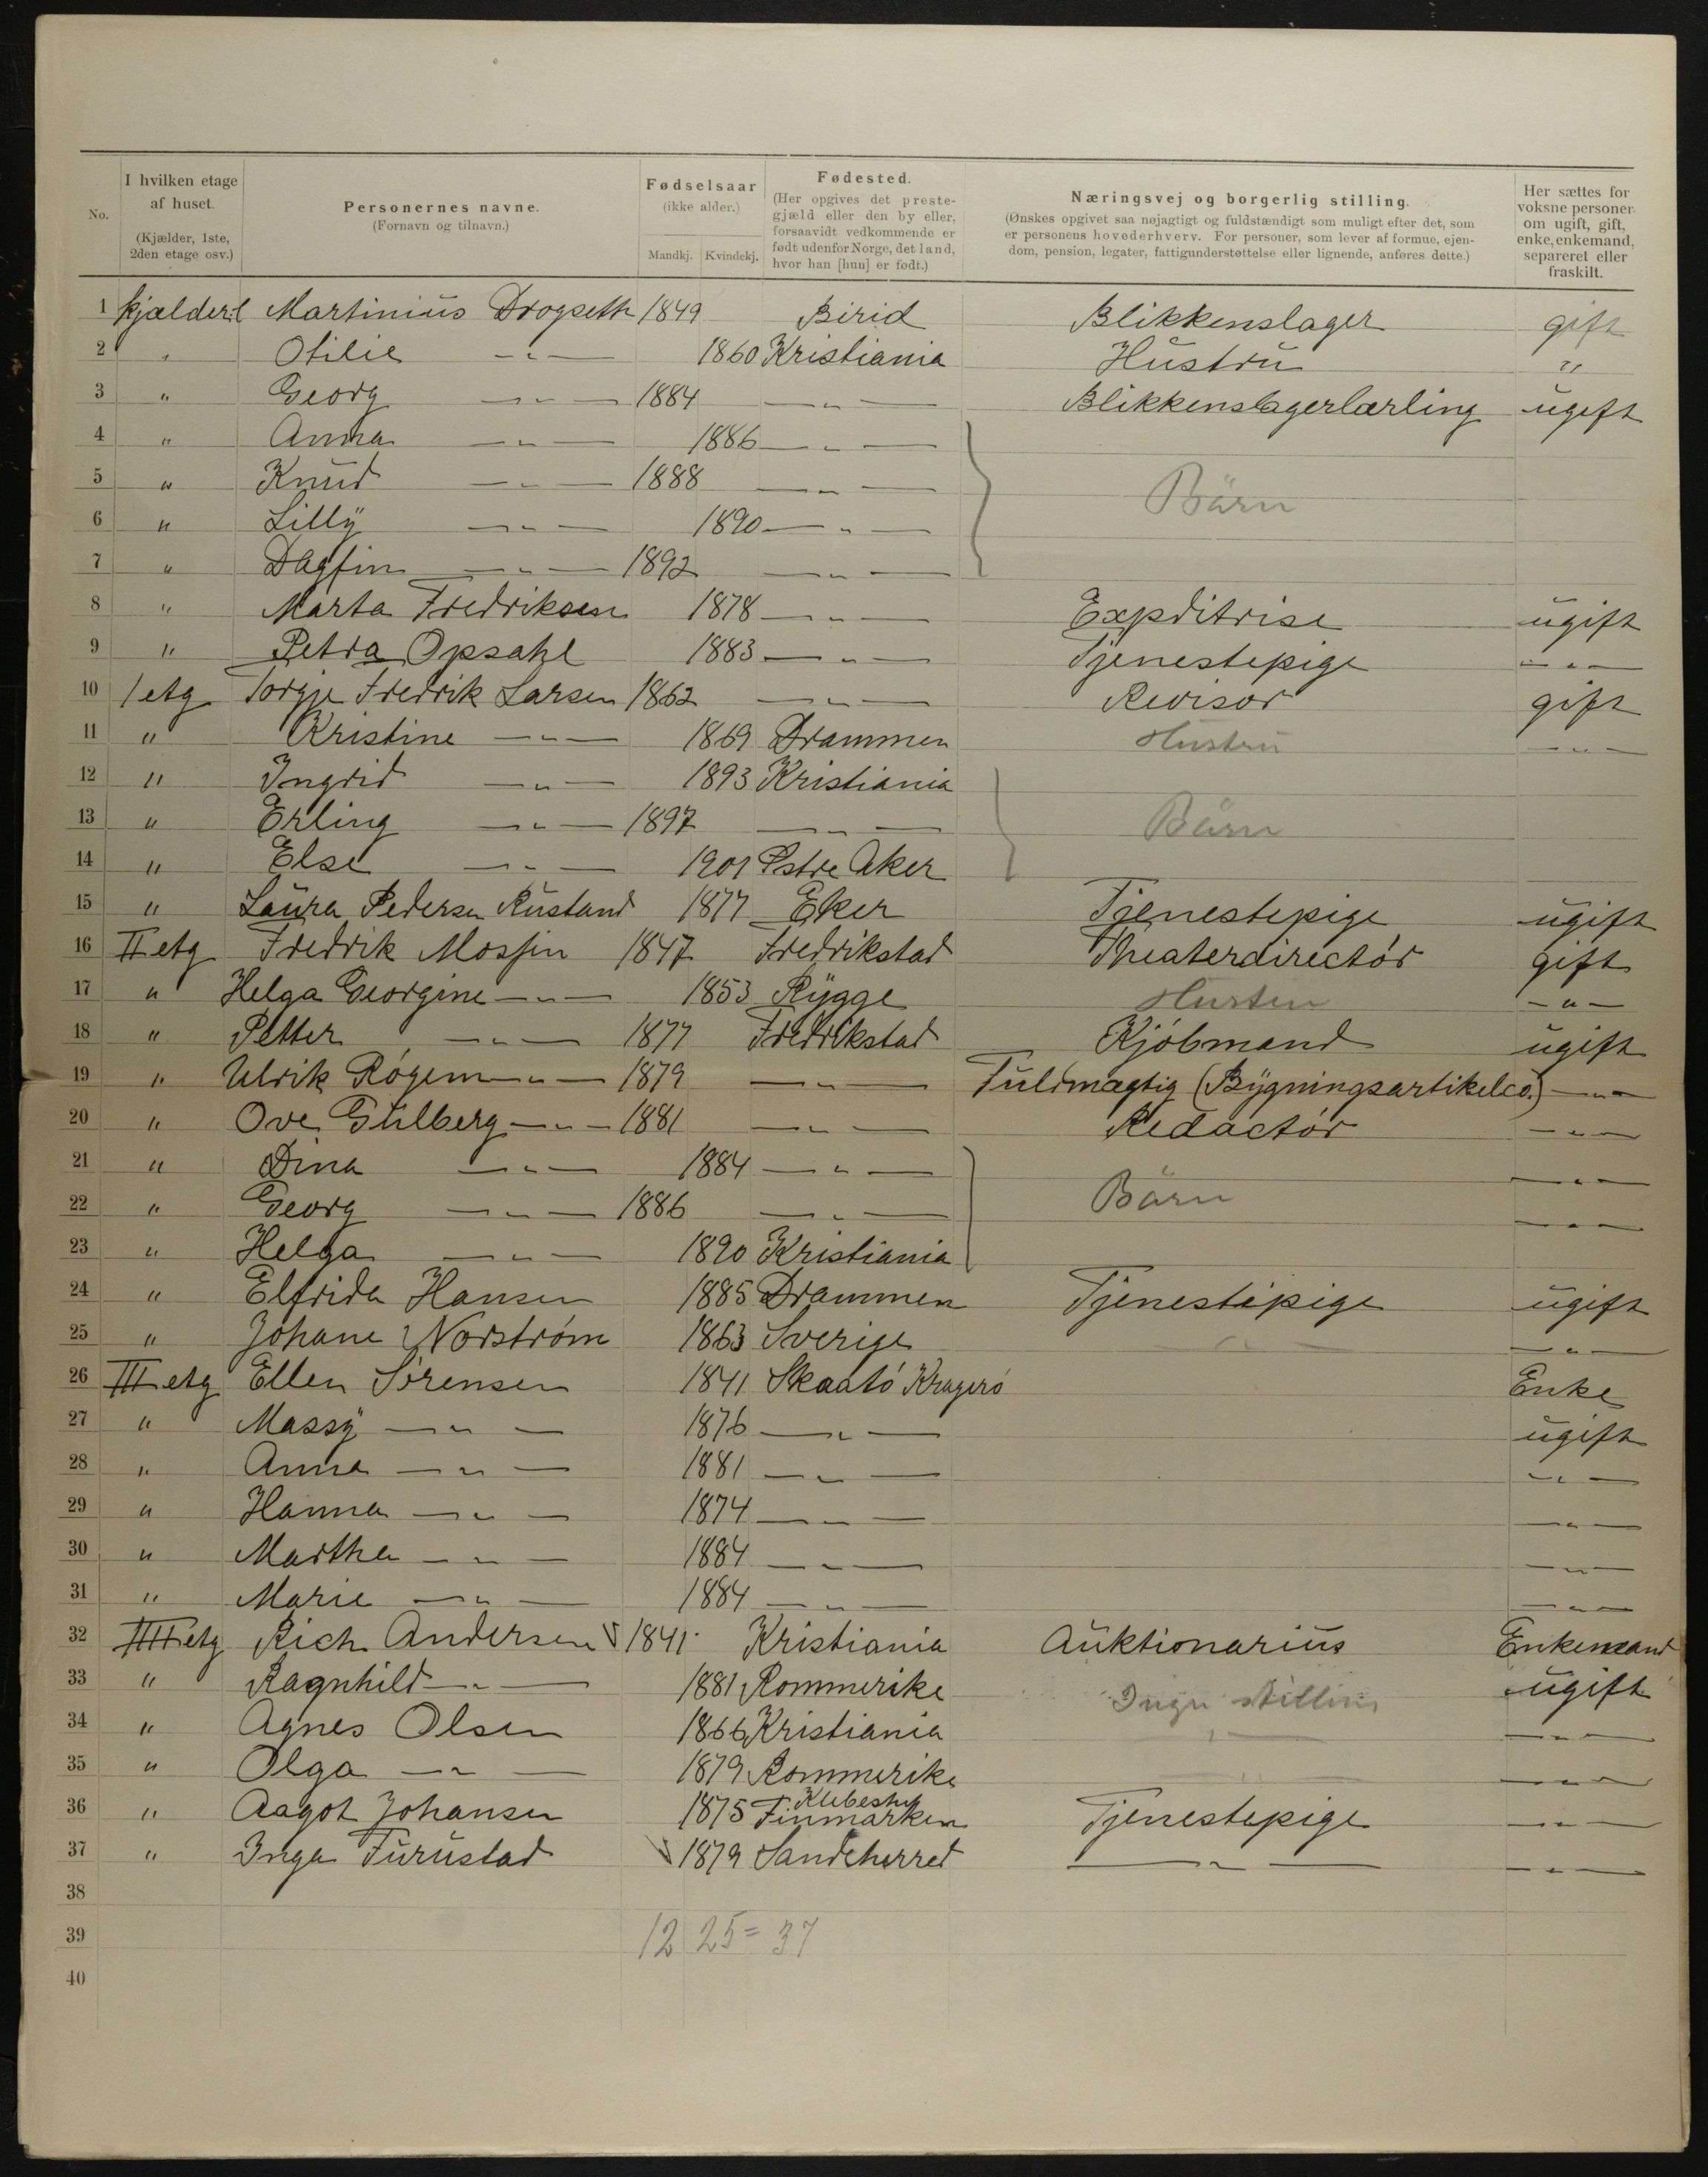 No.
I hvilken etage af huset. (Kjælder, 1ste, 2den etage osv.)
Personernes navne. (Fornavn og tilnavn.)
Fødselsaar (ikke alder.) Mandkj. Kvindekj.
Fødested. (Her opgives det prestegjæld eller den by eller, forsaavidt vedkommende er født udenfor Norge, det land, hvor han [hun] er født.)
Næringsvej og borgerlig stilling. (Ønskes opgivet saa nøjagtigt og fuldstændigt som muligt efter det, som er personens hovederhverv. For personer, som lever af formue, ejendom, pension, legater, fattigunderstøttelse eller lignende, anføres dette.)
Her sættes for voksne personer om ugift, gift, enke, enkemand, separeret eller fraskilt.
1 Martinius Drogseth 1849 Birid Blikkenslager gift
2 " Otilie —"— 1860 Kristiania Hustru "
3 " Georg —"— 1884 —"— Blikkenslagerlærling ugift
4 " Anna —"— 1886 —"—
5 " Knud —"— 1888 —"— Börn
6 " Lilly —"— 1890 —"—
7 " Dagfin —"— 1892 —"—
8 " Marta Fredriksen 1878 —"— Expditrise ugift
9 " Petra Opsahl 1883 —"— Tjenestepige —"—
10 1 etg Torgje Fredrik Larsen 1862 —"— Revisor gift
11 " Kristine —"— 1869 Drammen Hustru —"—
12 " Ingrid —"— 1893 Kristiania
13 " Erling —"— 1897 —"— Börn
14 " Else —"— 1901 Østre Aker
15 " Laura Pedersen Rustand 1877 Eker Tjenestepige ugift
16 II etg Fredrik Mosfin 1847 Fredrikstad Theaterdirectör gift
17 " Helga Georgine —"— 1853 Rygge Hustru —"—
18 " Petter —"— 1877 Fredrikstad Kjöbmand ugift
19 " Ulrik —"— 1879 —"— Fuldmægtig (Bygningsartikelco.) —"—
20 " Ove Gulberg —"— 1881 —"— Redactör —"—
21 " Dina —"— 1884 —"— —"—
22 " Georg —"— 1886 —"— Börn —"—
23 " Helga —"— 1890 Kristiania
24 " Elfrida Hansen 1885 Drammen Tjenestepige ugift
25 " Johane Norström 1863 Sverige —"— —"—
26 III etg Ellen Sörensen 1841 Skaatö Kragerö Enke
27 " Massy —"— 1876 —"— ugift
28 " Anna —"— 1881 —"— —"—
29 " Hanna —"— 1874 —"— —"—
30 " Martha —"— 1884 —"— —"—
31 " Marie —"— 1884 —"— —"—
32 IIII etg Rich Andersen 1841 Kristiania Auktionarius Enkemand
33 " Ragnhild —"— 1881 Rommerike Ingen stilling ugift
34 " Agnes Olsen 1866 Kristiania —"— —"—
35 " Olga —"— 1879 Rommerike —"— —"—
36 " Aagot Johansen 1875 Finmarken Tjenestepige —"—
37 " Inga Furustad 1879 Sandeherred —"— —"—
38
39 12 25 = 37
40